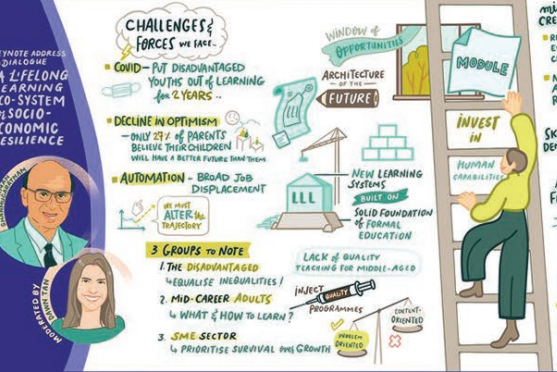 KEYNOTE ADDRESS
& DIALOGUE
A LIFELONG
LEARNING
ECO-SYSTEM
SOCIO-
ECONOMIC
RESILIENCE
MODERATED BY
DAWN TAN
CHALLENGES &
FORCES WE FACE..
COVID – PUT DISADVANTAGED
YOUTHS OUT OF LEARNING
for 2 YEARS ..
DECLINE IN OPTIMISM
– ONLY 27% OF PARENTS
BELIEVE THEIR CHILDREN
WILL HAVE A BETTER FUTURE THAN THEM
AUTOMATION – BROAD JOB
DISPLACEMENT
WE MUST
ALTER the
TRAJECTORY
3 GROUPS TO NOTE
1. THE DISADVANTAGED
↳ EQUALISE INEQUALITIES!
2. MID-CAREER ADULTS
↳ WHAT & HOW TO LEARN?
3. SME SECTOR
↳ PRIORITISE SURVIVAL over GROWTH
WINDOW of
OPPORTUNITIES
ARCHITECTURE
OF the
FUTURE
LLL
LLL
NEW LEARNING
SYSTEMS
BUILT ON
SOLID FOUNDATION
of FORMAL
EDUCATION
LACK of QUALITY
TEACHING FOR MIDDLE-AGED
INJECT
QUALITY
PROGRAMMES
PROBLEM
ORIENTED
CONTENT-
ORIENTED
MODULE
INVEST
IN
HUMAN
CAPABILITIES